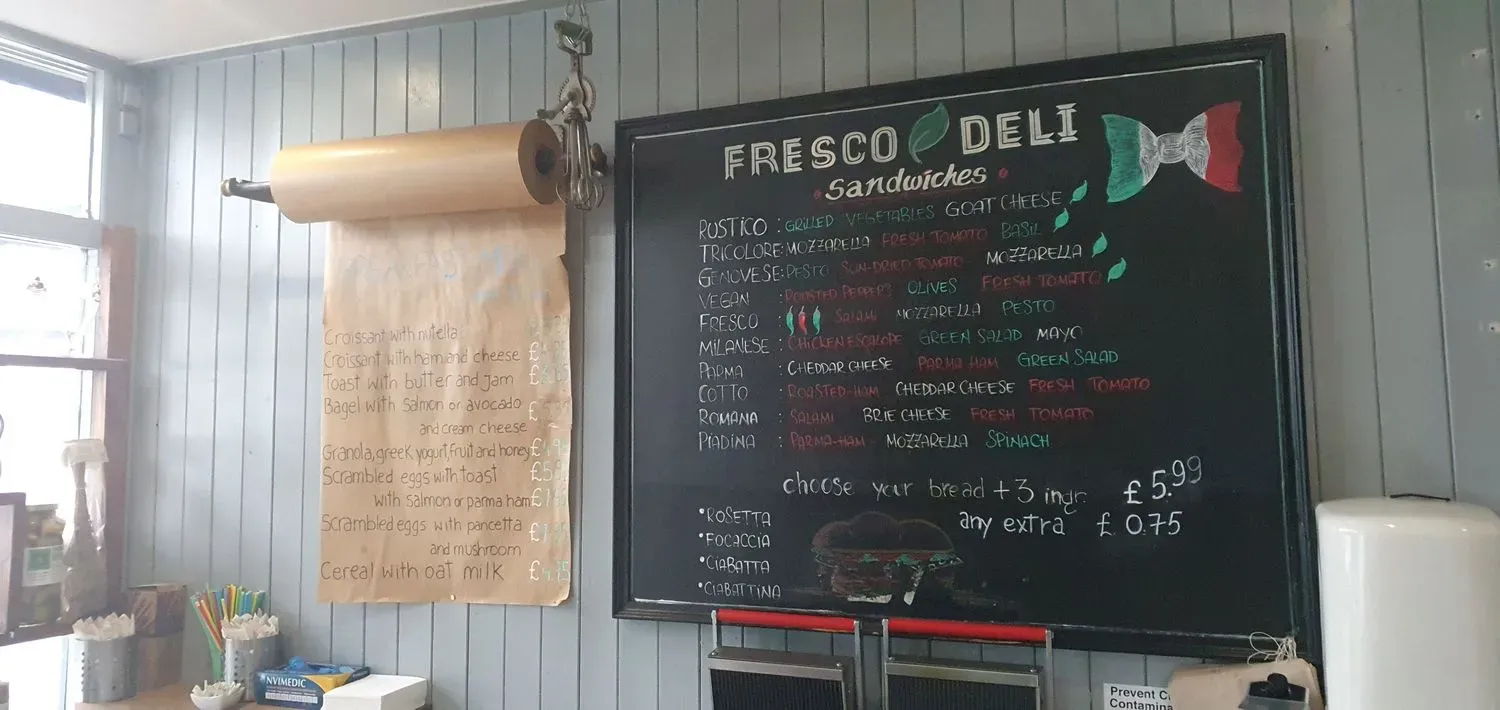 Croissant with nutella
Croissant with ham and cheese £
Toast with butter and Jam £
Bagel with Salmon or avocado £
and cream cheese
Granola, greek yogurt, fruit and honey
Scrambled eggs with toast
with salmon or parma ham
Scrambled eggs with pancetta
and mushroom
Cereal with oat milk £4.75
FRESCO DELI
Sandwiches
RUSTICO : GRILLED VEGETABLES GOAT CHEESE
TRICOLORE: MOZZARELLA FRESH TOMATO BASIL
GENOVESE: PESTO SUN-DRIED TOMATO MOZZARELLA
VEGAN : ROASTED PEPPERS OLIVES FRESH TOMATO
FRESCO : SALAMI MOZZARELLA PESTO
MILANESE : CHICKEN ESCALOPE GREEN SALAD MAYO
PARMA : CHEDDAR CHEESE PARMA HAM GREEN SALAD
COTTO : ROASTED-HAM CHEDDAR CHEESE FRESH TOMATO
ROMANA : SALAMI BRIE CHEESE FRESH TOMATO
PIADINA : PARMA-HAM MOZZARELLA SPINACH
choose your bread + 3 ingr. £5.99
any extra £0.75
•ROSETTA
•FOCACCIA
•CIABATTA
•CIABATTINA
NVIMEDIC
Prevent
Contamina